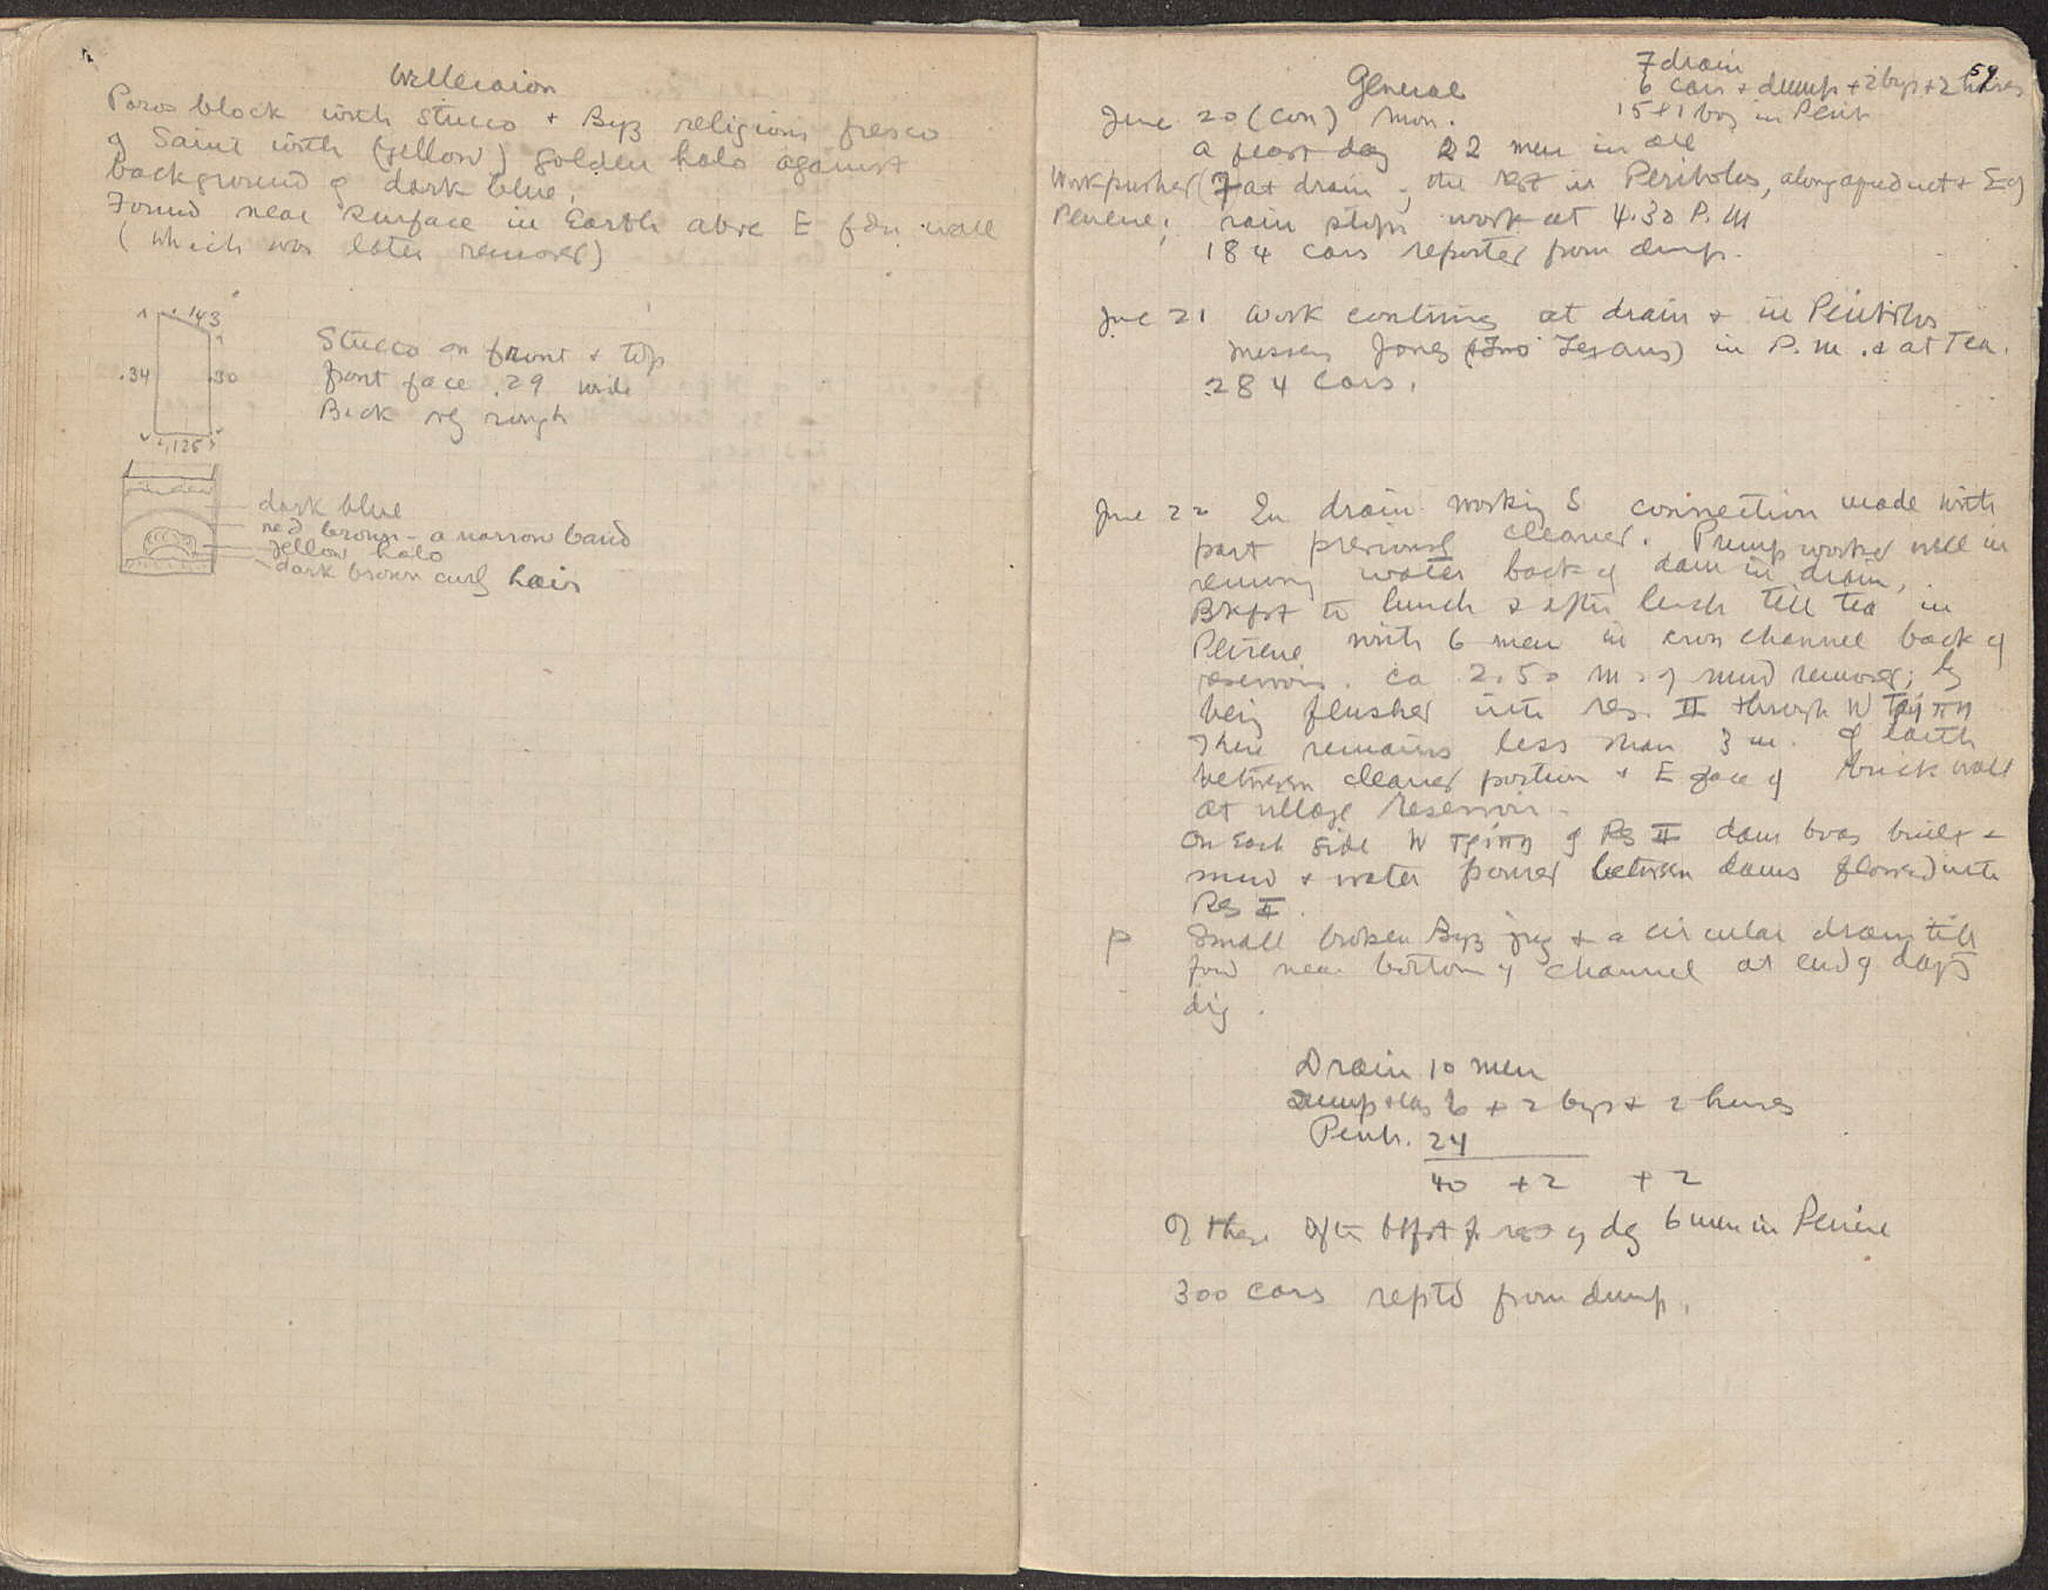 Poros block with stucco + Byz religious fresco
of Saint with (yellow) golden halo against
background of dark blue.
Found near surface in Earth above E fdn. wall
(which was later removed)
.143
.34
.30
.125
Stucco on front + top
front face .29 wide
Back rough
dark blue
red brown - a narrow band
yellow halo
dark brown curly hair
59
General
7 drain
6 cars + dump + 2 boys + 2 horses
15 + 1 boy in Perib
June 20 (con) Mon.
a feast day 22 men in all
Work pushed (7 at drain; the rest in Peribolos, along aqueduct + E of
Peirene; rain stops work at 4.30 P.M
184 cars reported from dump.
June 21 Work continues at drain + in Peribolos
Messrs Jones (two Texans) in P.M. & at Tea.
284 Cars.
June 22 In drain working S connection made with
part previously cleared. Pump worked well in
removing water back of dam in drain.
Bkfst to lunch & after lunch till tea in
Peirene with 6 men in channel back of
reservoirs. ca 2.50 m of mud removed; by
being flushed into res. II through W
There remains less than 3 m. of earth
between cleared portion + E face of brick wall
at village reservoir.
On Each side W of Res II dam was built +
mud + water poured between dams flowed into
Res II.
P Small broken Byz jug + a circular drain tile
found near bottom of channel at end of day's
dig.
Drain 10 men
Dump + cars 6 + 2 boys + 2 horses
Perib. 24
40 + 2 + 2
Of these after bkfst for rest of day 6 men in Peirene
300 cars reptd from dump.